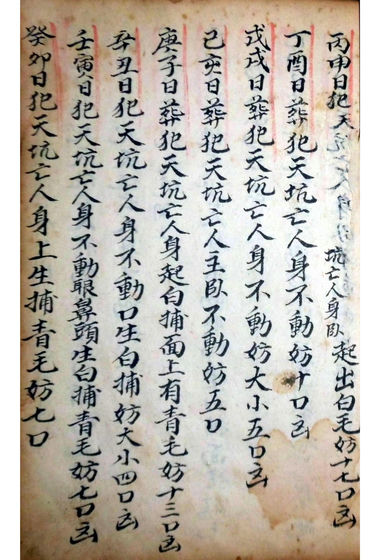 丙申日犯天坑亡人身臥起出白毛妨十七口凶
丁酉日葬犯天坑亡人身不動妨十口凶
戊戌日葬犯天坑亡人身不動妨大小五口凶
己亥日葬犯天坑亡人主臥不動妨五口
庚子日葬犯天坑亡人身起白捕面上有青毛妨十三口凶
辛丑日犯天坑亡人身不動口生白捕妨大小四口凶
壬寅日犯天坑亡人身不動眼鼻頭生白捕青毛妨七口凶
癸卯日犯天坑亡人身上生捕青毛妨七口